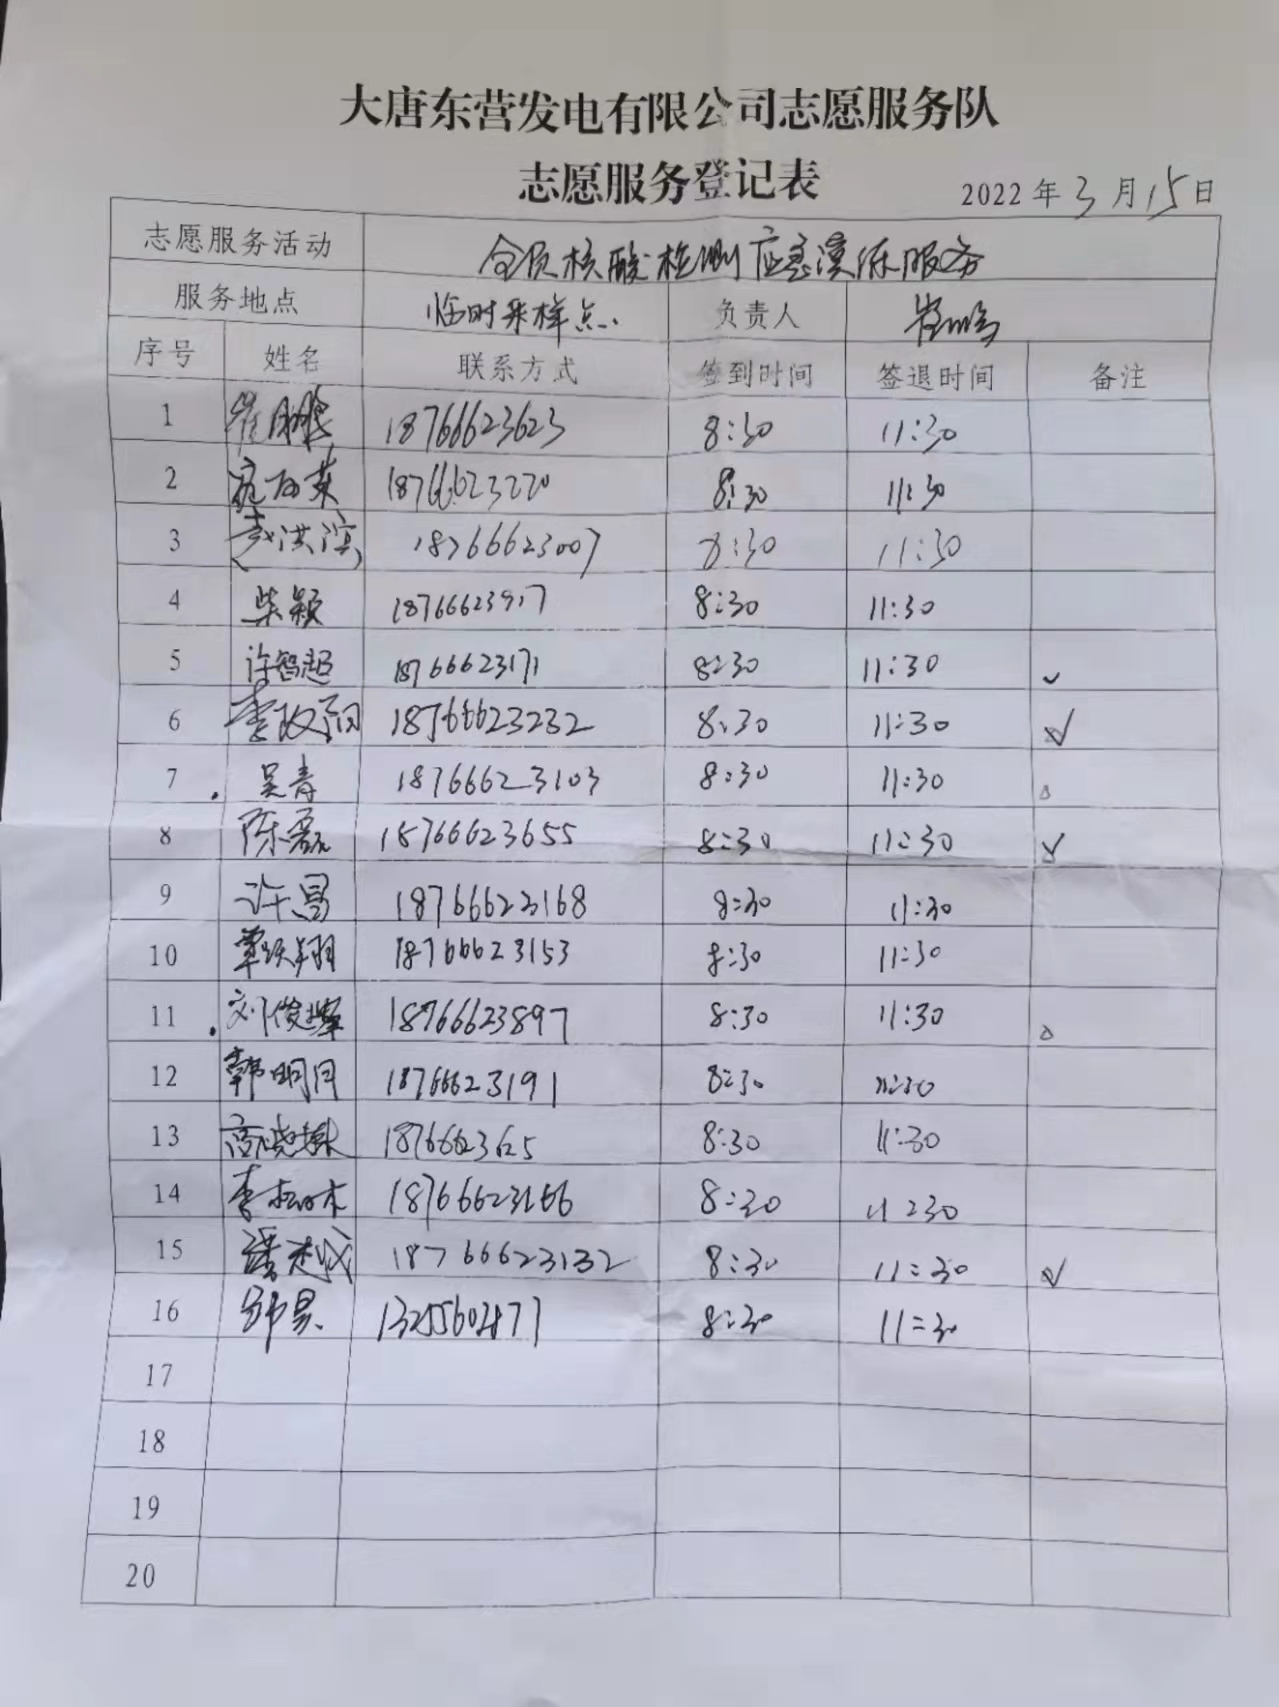 大唐东营发电有限公司志愿服务队
志愿服务登记表
2022年3月15日
志愿服务活动 全员核酸检测应急演练服务
服务地点 临时采样点 负责人 崔鹏
序号 姓名 联系方式 签到时间 签退时间 备注
1 崔鹏 18766623623 8:30 11:30
2 18766623220 8:30 11:30
3 李洪滨 18766623007 8:30 11:30
4 柴颖 18766623917 8:30 11:30
5 许智超 18766623171 8:30 11:30 ✓
6 李政阳 18766623232 8:30 11:30 ✓
7 吴青 18766623103 8:30 11:30
8 陈磊 18766623655 8:30 11:30 ✓
9 许昌 18766623168 8:30 11:30
10 18766623153 8:30 11:30
11 刘俊 18766623897 8:30 11:30
12 韩明月 18766623191 8:30 11:30
13 高晓 8:30 11:30
14 李松林 18766623166 8:30 11:30
15 潘志成 18766623132 8:30 11:30 ✓
16 8:30 11:30
17
18
19
20